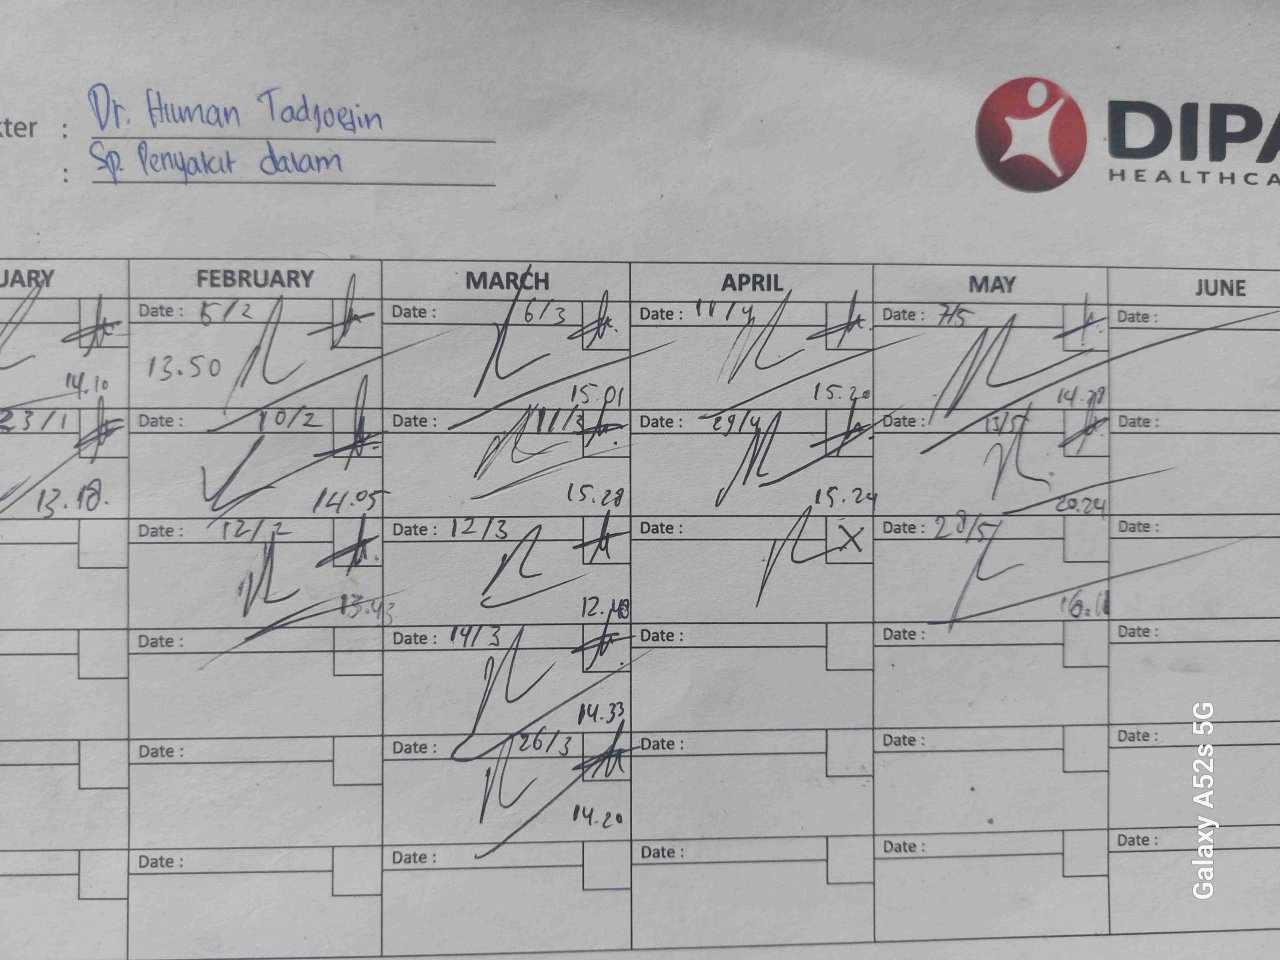 Dr. Human Tadjoedin
kter :
: Sp. Penyakit dalam
DIPA
HEALTHCA
UARY FEBRUARY MARCH APRIL MAY JUNE
Date : 5/2 Date : 6/3 Date : 11/4 Date : 7/5 Date :
14.10 13.50 15.01 15.20
23/1 Date : 10/2 Date : 11/3 Date : 29/4 Date : 13/5 Date :
13.18. 14.05 15.28 15.24 20.24
Date : 12/2 Date : 12/3 Date : X Date : 28/5 Date :
13.43 12.40
Date : Date : 14/3 Date : Date : Date :
14.33
Date : Date : 26/3 Date : Date : Date :
14.20
Date : Date : Date : Date : Date :
Galaxy A52s 5G